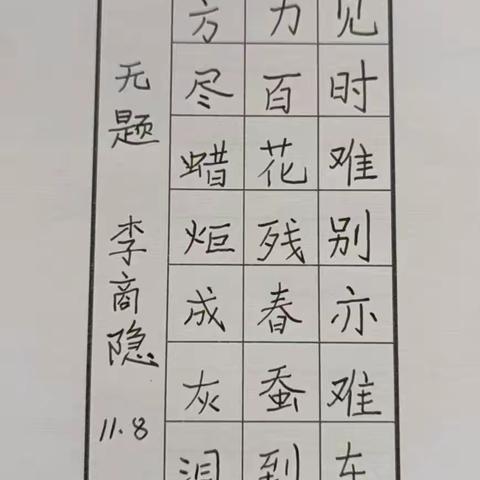 见时难别亦难东
力百花残春蚕到
方尽蜡炬成灰泪
无题 李商隐 11.8